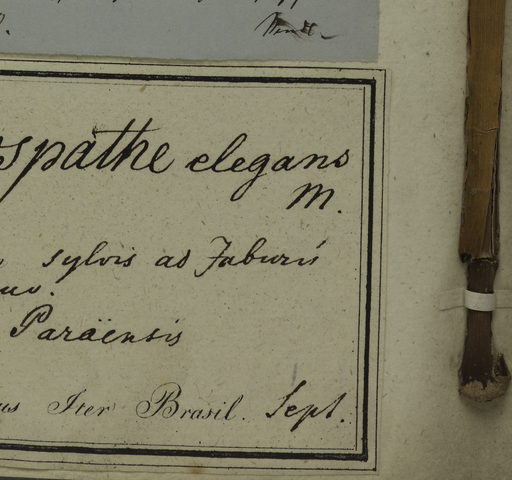 spathe elegans
M.
sylvis ad Jaburú
Paraënsis
us Iter Brasil. Sept.